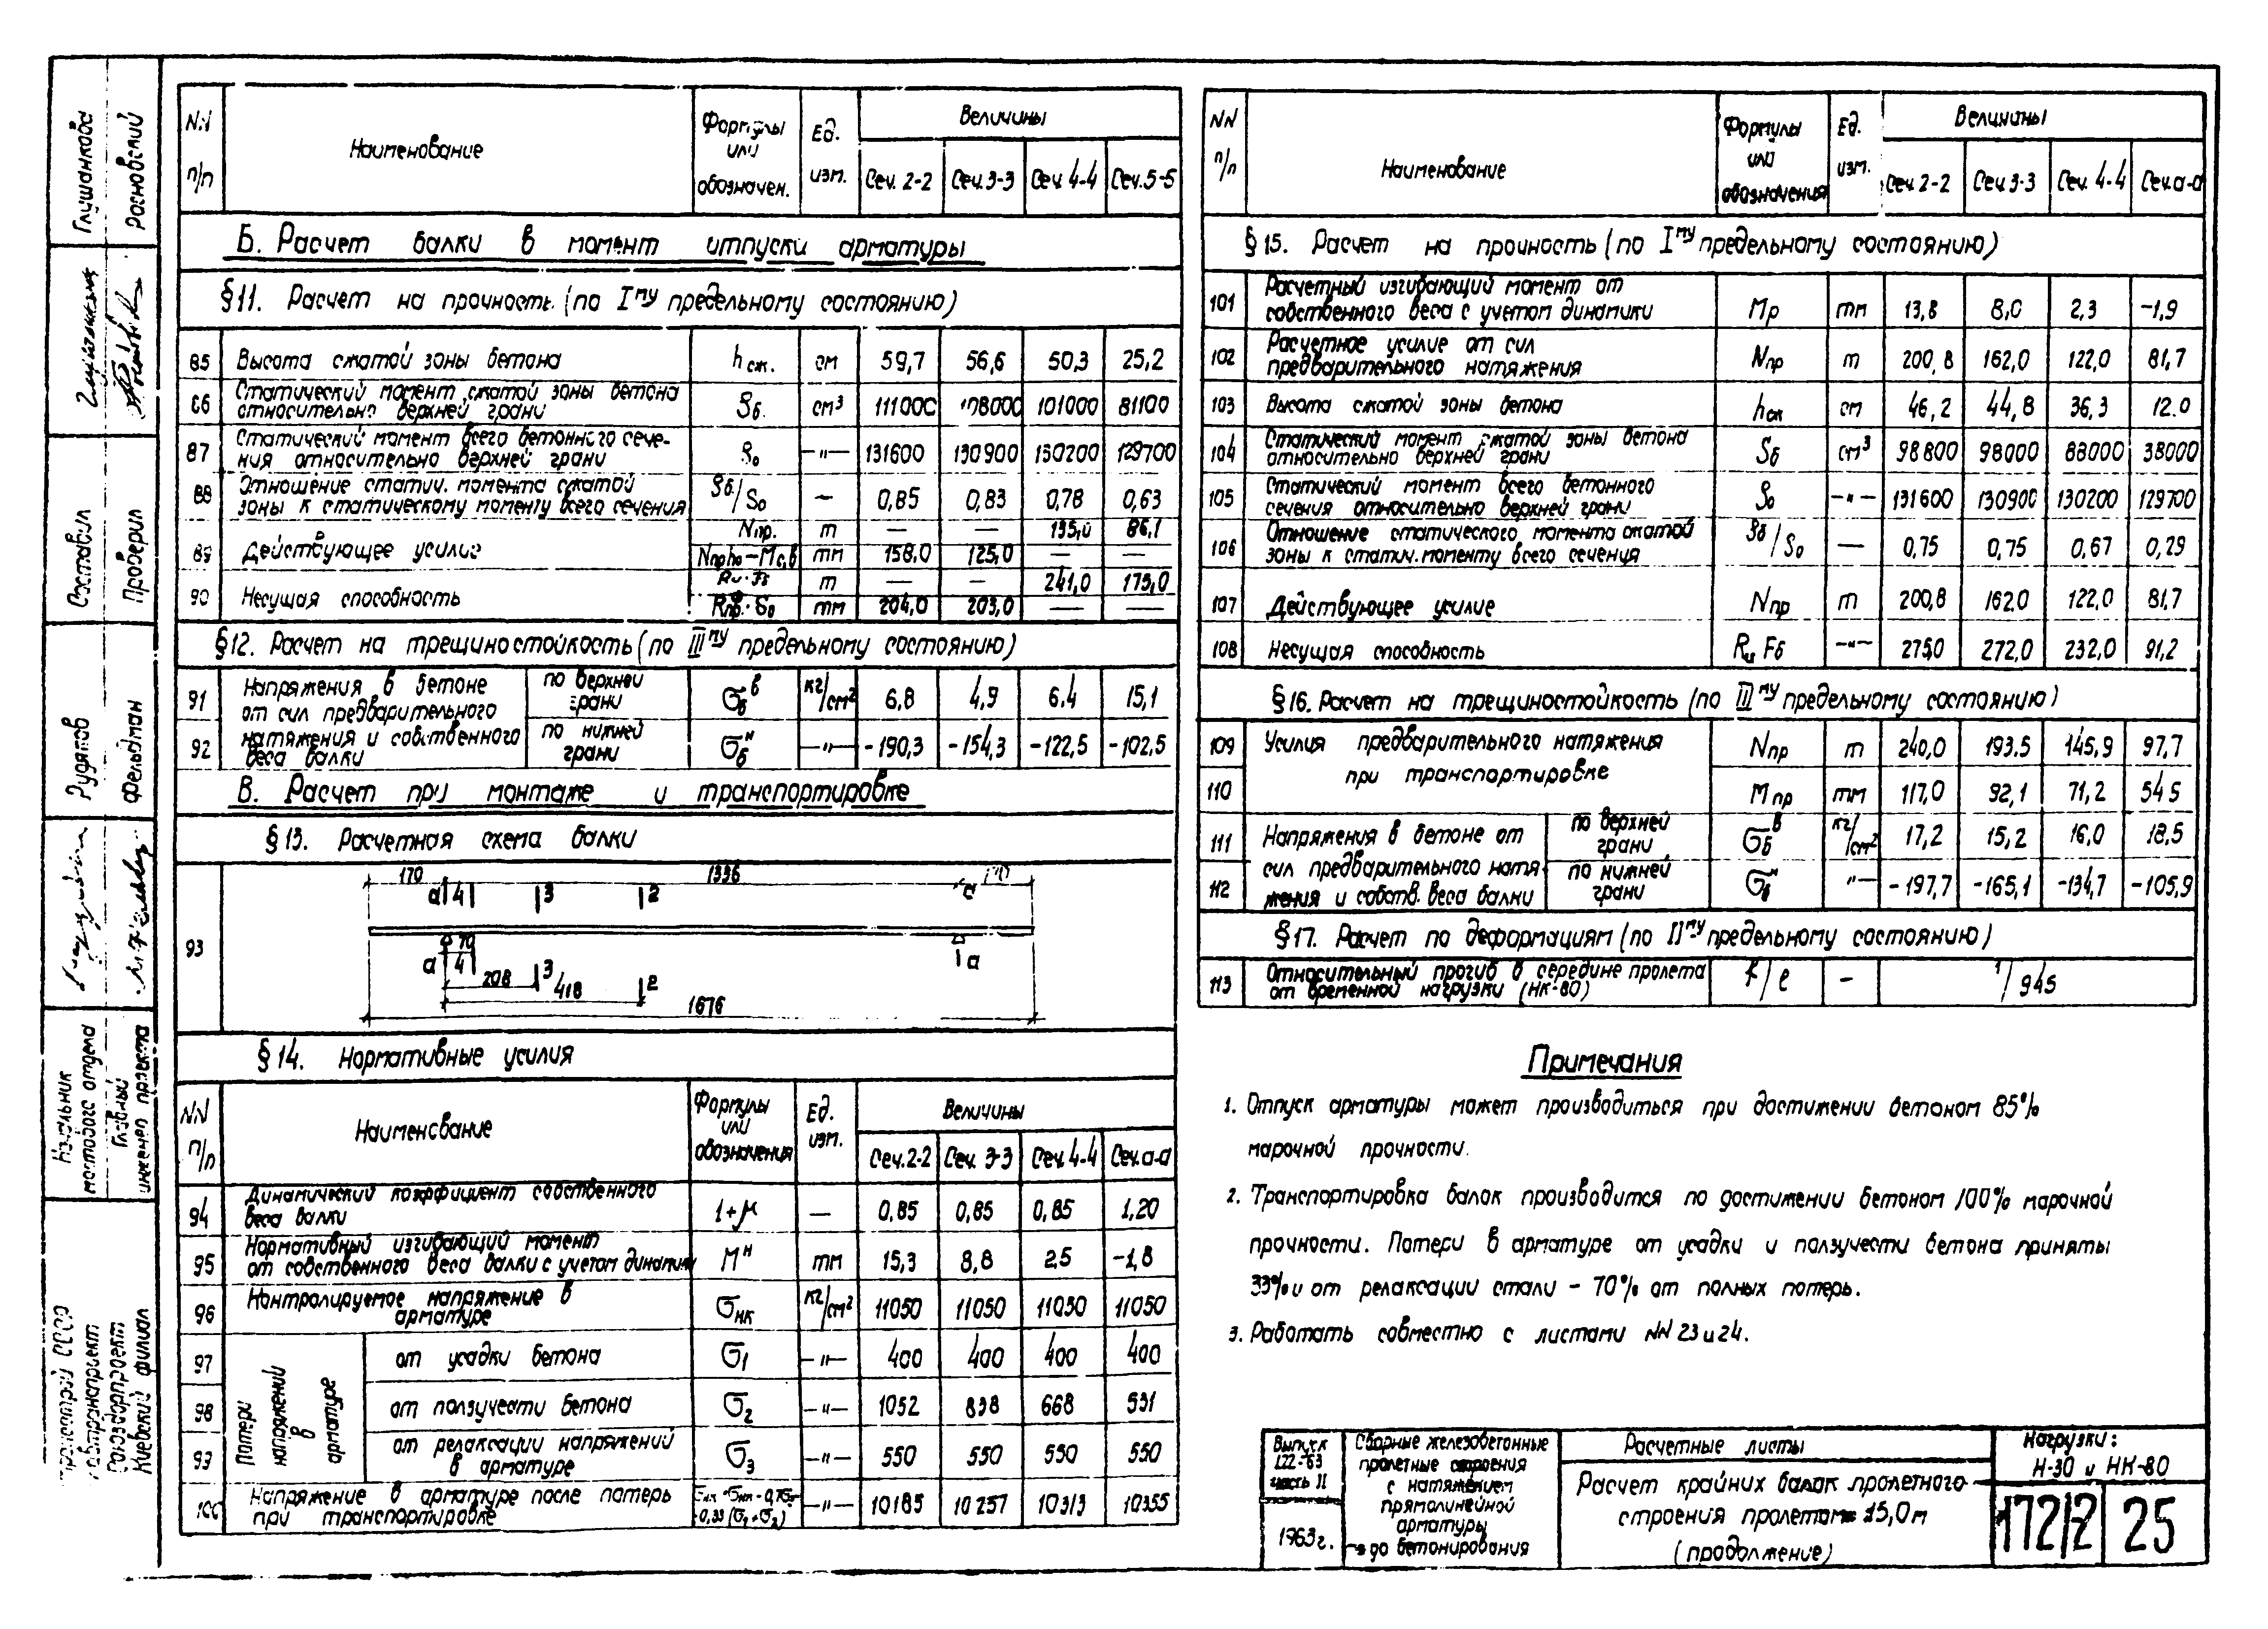 NN п/п Наименование Формулы или обозначен. Ед. изм. Величины
Сеч. 2-2 Сеч. 3-3 Сеч. 4-4 Сеч. 5-5
Б. Расчет балки в момент отпуски арматуры
§11. Расчет на прочность (по Iму предельному состоянию)
85 Высота сжатой зоны бетона hсж. см 59,7 56,6 50,3 25,2
86 Статический момент сжатой зоны бетона
относительно верхней грани Sб. см³ 111000 108000 101000 81100
87 Статический момент всего бетонного сече-
ния относительно верхней грани So —"— 131600 130900 130200 129700
88 Отношение статич. момента сжатой
зоны к статическому моменту всего сечения Sб/So — 0,85 0,83 0,78 0,63
89 Действующее усилие Nпр. т — — 135,0 86,1
Nпрho-Mс.в тм 158,0 125,0 — —
90 Несущая способность Rи·Fб т — — 241,0 175,0
Rпр·So тм 204,0 203,0 — —
§12. Расчет на трещиностойкость (по IIIму предельному состоянию)
91 Напряжения в бетоне
от сил предварительного
натяжения и собственного
веса балки
по верхней грани σбв кг/см² 6,8 4,9 6,4 15,1
92 по нижней грани σбн —"— -190,3 -154,3 -122,5 -102,5
В. Расчет при монтаже и транспортировке
§13. Расчетная схема балки
93
170 1336
а 4 3 2 а
70
а 4 3 2 а
208
418
1676
§14. Нормативные усилия
NN п/п Наименование Формулы или обозначения Ед. изм. Величины
Сеч. 2-2 Сеч. 3-3 Сеч. 4-4 Сеч. а-а
94 Динамический коэффициент собственного
веса балки 1+μ — 0,85 0,85 0,85 1,20
95 Нормативный изгибающий момент
от собственного веса балки с учетом динамики Mн тм 15,3 8,8 2,5 -1,8
96 Контролируемое напряжение в
арматуре σнк кг/см² 11050 11050 11050 11050
Потери напряжений в арматуре
97 от усадки бетона σ1 —"— 400 400 400 400
98 от ползучести бетона σ2 —"— 1052 838 668 531
99 от релаксации напряжений
в арматуре σ3 —"— 550 550 550 550
100 Напряжение в арматуре после потерь
при транспортировке —"— 10185 10257 10313 10355
NN п/п Наименование Формулы или обозначения Ед. изм. Величины
Сеч. 2-2 Сеч. 3-3 Сеч. 4-4 Сеч. а-а
§15. Расчет на прочность (по Iму предельному состоянию)
101 Расчетный изгибающий момент от
собственного веса с учетом динамики Mр тм 13,8 8,0 2,3 -1,9
102 Расчетное усилие от сил
предварительного натяжения Nпр т 200,8 162,0 122,0 81,7
103 Высота сжатой зоны бетона hсж см 46,2 44,8 36,3 12.0
104 Статический момент сжатой зоны бетона
относительно верхней грани Sб см³ 98800 98000 88000 38000
105 Статический момент всего бетонного
сечения относительно верхней грани So —"— 131600 130900 130200 129700
106 Отношение статического момента сжатой
зоны к статич. моменту всего сечения Sб/So — 0,75 0,75 0,67 0,29
107 Действующее усилие Nпр т 200,8 162,0 122,0 81,7
108 Несущая способность Rи Fб —"— 275,0 272,0 232,0 91,2
§16. Расчет на трещиностойкость (по IIIму предельному состоянию)
109 Усилия предварительного натяжения Nпр т 240,0 193.5 145,9 97,7
110 при транспортировке Mпр тм 117,0 92,1 71,2 54,5
111 Напряжения в бетоне от
сил предварительного натя-
жения и собств. веса балки
по верхней грани σбв кг/см² 17,2 15,2 16,0 18,5
112 по нижней грани σбн "— -197,7 -165,1 -134,7 -105,9
§17. Расчет по деформациям (по IIму предельному состоянию)
113 Относительный прогиб в середине пролета
от временной нагрузки (НК-80) f/l — 1/945
Примечания
1. Отпуск арматуры может производиться при достижении бетоном 85%
марочной прочности.
2. Транспортировка балок производится по достижении бетоном 100% марочной
прочности. Потери в арматуре от усадки и ползучести бетона приняты
33% и от релаксации стали - 70% от полных потерь.
3. Работать совместно с листами NN 23 и 24.
Выпуск
122-63
часть II
1963г.
Сборные железобетонные
пролетные строения
с натяжением
прямолинейной
арматуры
до бетонирования
Расчетные листы
Расчет крайних балок пролетного
строения пролетом 15,0м
(продолжение)
Нагрузки:
Н-30 и НК-80
172/2 25
Глушанкова
Расновский
Составил
Проверил
Рудяков
Фельдман
Начальник
мостового отдела
Главный
инженер проекта
Союздорпроект
Киевский филиал